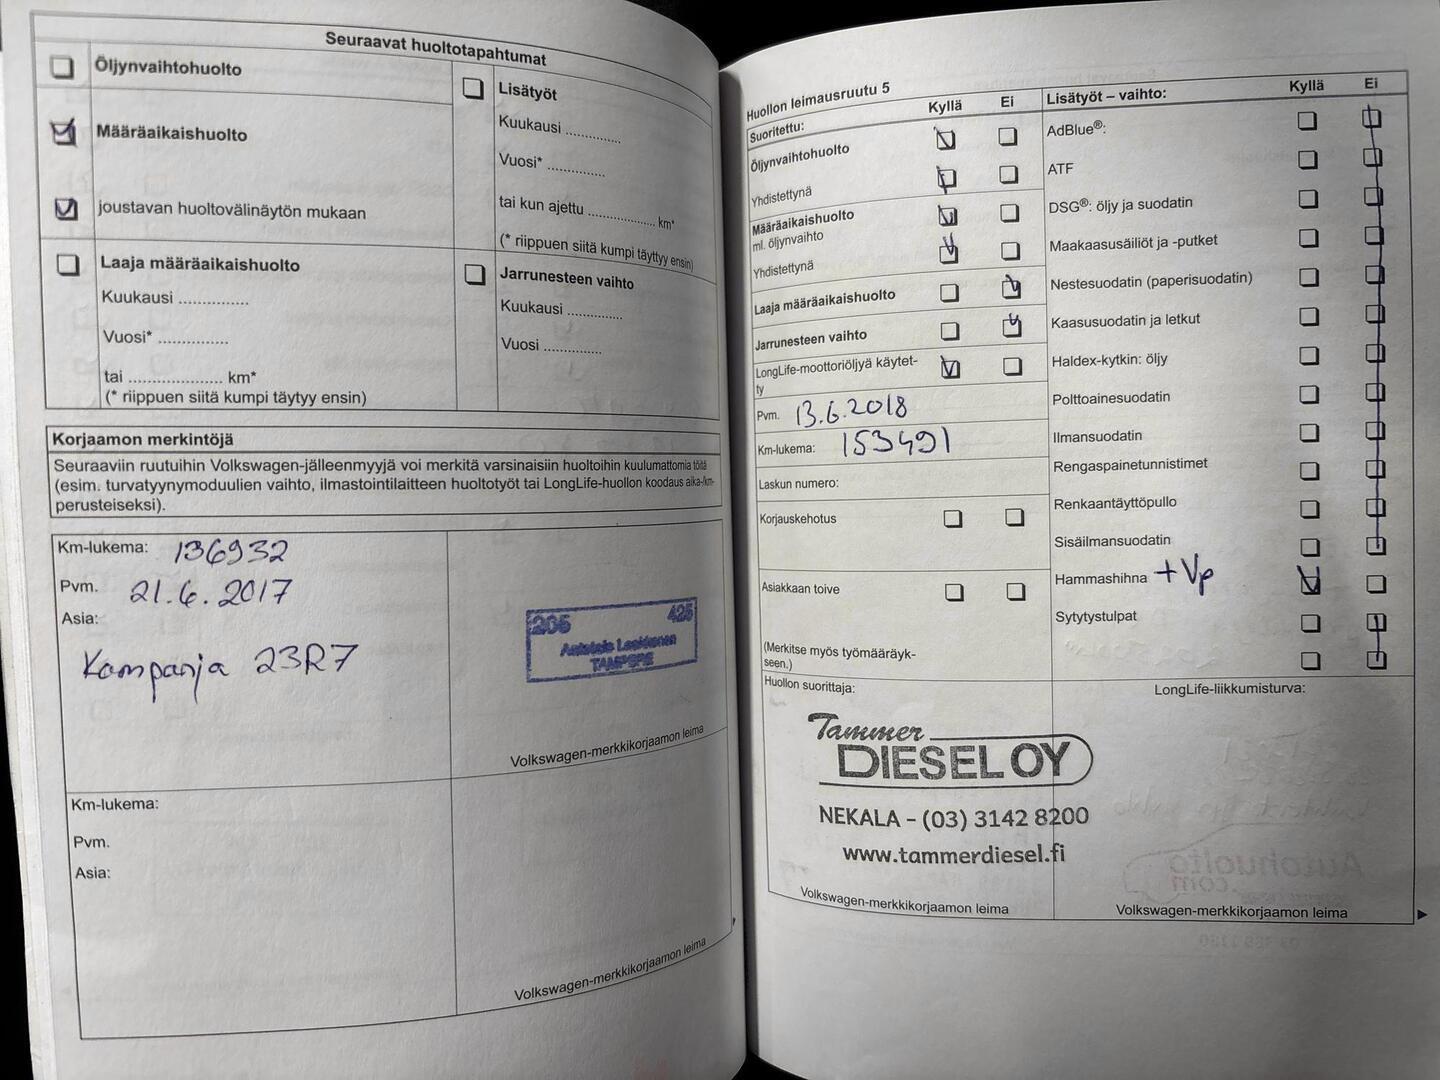 Seuraavat huoltotapahtumat
Öljynvaihtohuolto
Määräaikaishuolto
joustavan huoltovälinäytön mukaan
Laaja määräaikaishuolto
Kuukausi ...............
Vuosi* ...............
tai ..................... km*
(* riippuen siitä kumpi täytyy ensin)
Lisätyöt
Kuukausi ............
Vuosi* .............
tai kun ajettu ................... km*
(* riippuen siitä kumpi täyttyy ensin)
Jarrunesteen vaihto
Kuukausi ............
Vuosi .............
Korjaamon merkintöjä
Seuraaviin ruutuihin Volkswagen-jälleenmyyjä voi merkitä varsinaisiin huoltoihin kuulumattomia töitä
(esim. turvatyynymoduulien vaihto, ilmastointilaitteen huoltotyöt tai LongLife-huollon koodaus aika-/km-
perusteiseksi).
Km-lukema: 136932
Pvm. 21.6.2017
Asia:
Kampanja 23R7
205 425
TAMPERE
Volkswagen-merkkikorjaamon leima
Km-lukema:
Pvm.
Asia:
Volkswagen-merkkikorjaamon leima
Huollon leimausruutu 5
Suoritettu: Kyllä Ei
Öljynvaihtohuolto
Yhdistettynä
Määräaikaishuolto
ml. öljynvaihto
Yhdistettynä
Laaja määräaikaishuolto
Jarrunesteen vaihto
LongLife-moottoriöljyä käytet-
ty
Pvm. 13.6.2018
Km-lukema: 153491
Laskun numero:
Korjauskehotus
Asiakkaan toive
(Merkitse myös työmääräyk-
seen.)
Lisätyöt – vaihto: Kyllä Ei
AdBlue®:
ATF
DSG®: öljy ja suodatin
Maakaasusäiliöt ja -putket
Nestesuodatin (paperisuodatin)
Kaasusuodatin ja letkut
Haldex-kytkin: öljy
Polttoainesuodatin
Ilmansuodatin
Rengaspainetunnistimet
Renkaantäyttöpullo
Sisäilmansuodatin
Hammashihna +Vp
Sytytystulpat
Huollon suorittaja:
Tammer
DIESEL OY
NEKALA - (03) 3142 8200
www.tammerdiesel.fi
Volkswagen-merkkikorjaamon leima
LongLife-liikkumisturva:
Volkswagen-merkkikorjaamon leima